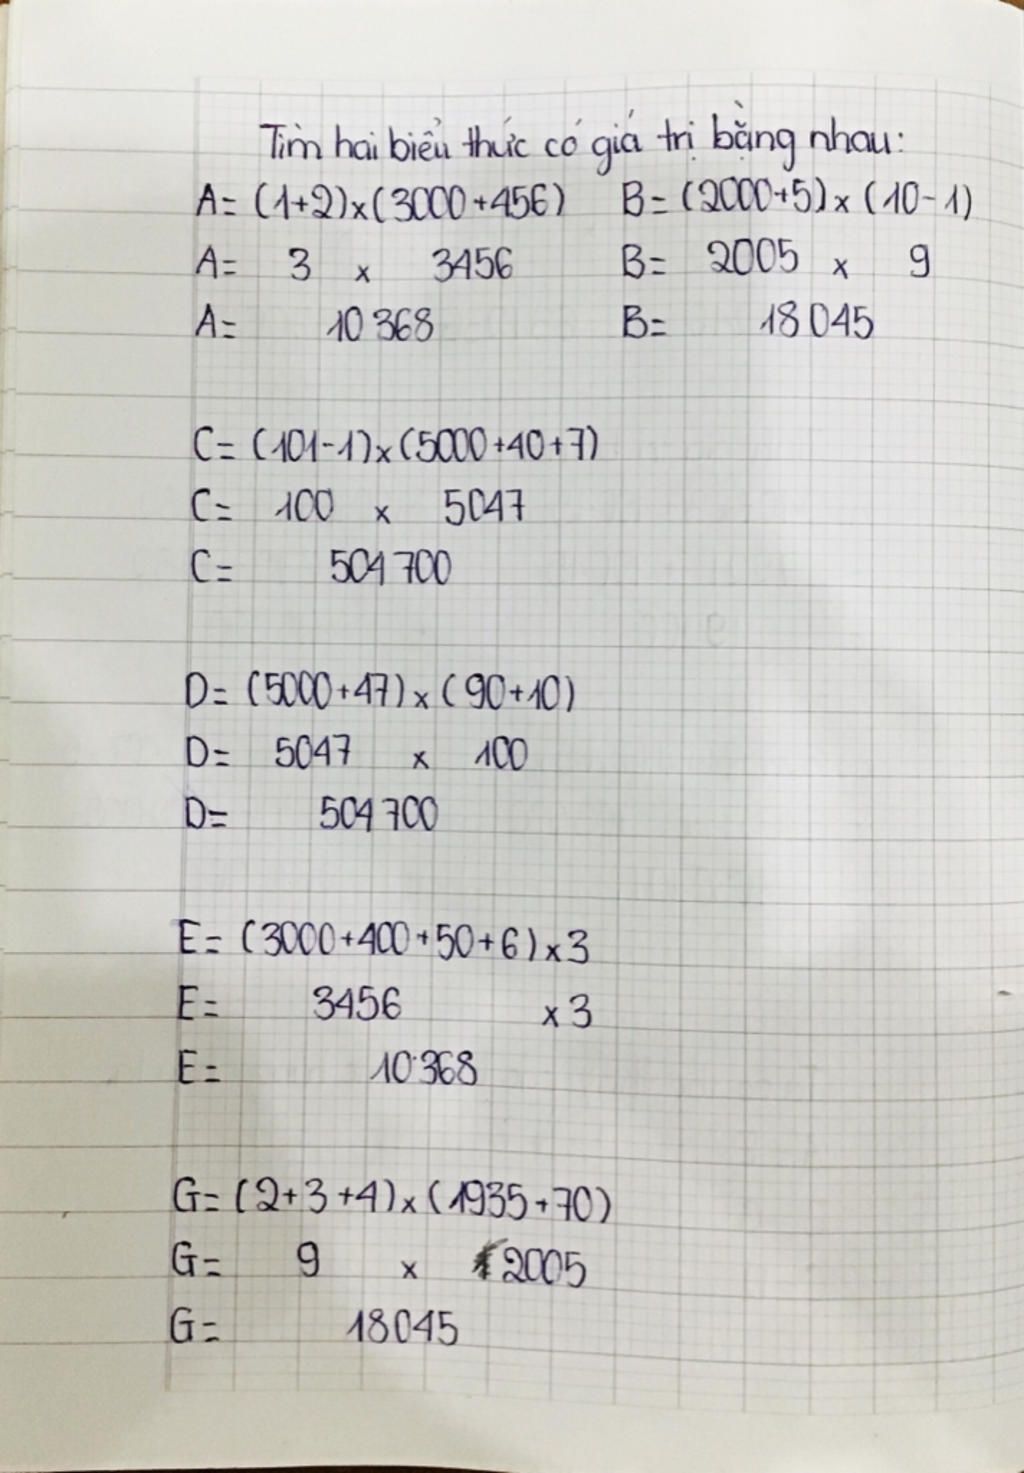 Tìm hai biểu thức có giá trị bằng nhau:
A= (1+2)x(3000+456) B= (2000+5)x(10-1)
A= 3 x 3456 B= 2005 x 9
A= 10 368 B= 18 045
C= (101-1)x(5000+40+7)
C= 100 x 5047
C= 504 700
D= (5000+47)x(90+10)
D= 5047 x 100
D= 504 700
E= (3000+400+50+6)x3
E= 3456 x3
E= 10 368
G= (2+3+4)x(1935+70)
G= 9 x 2005
G= 18045